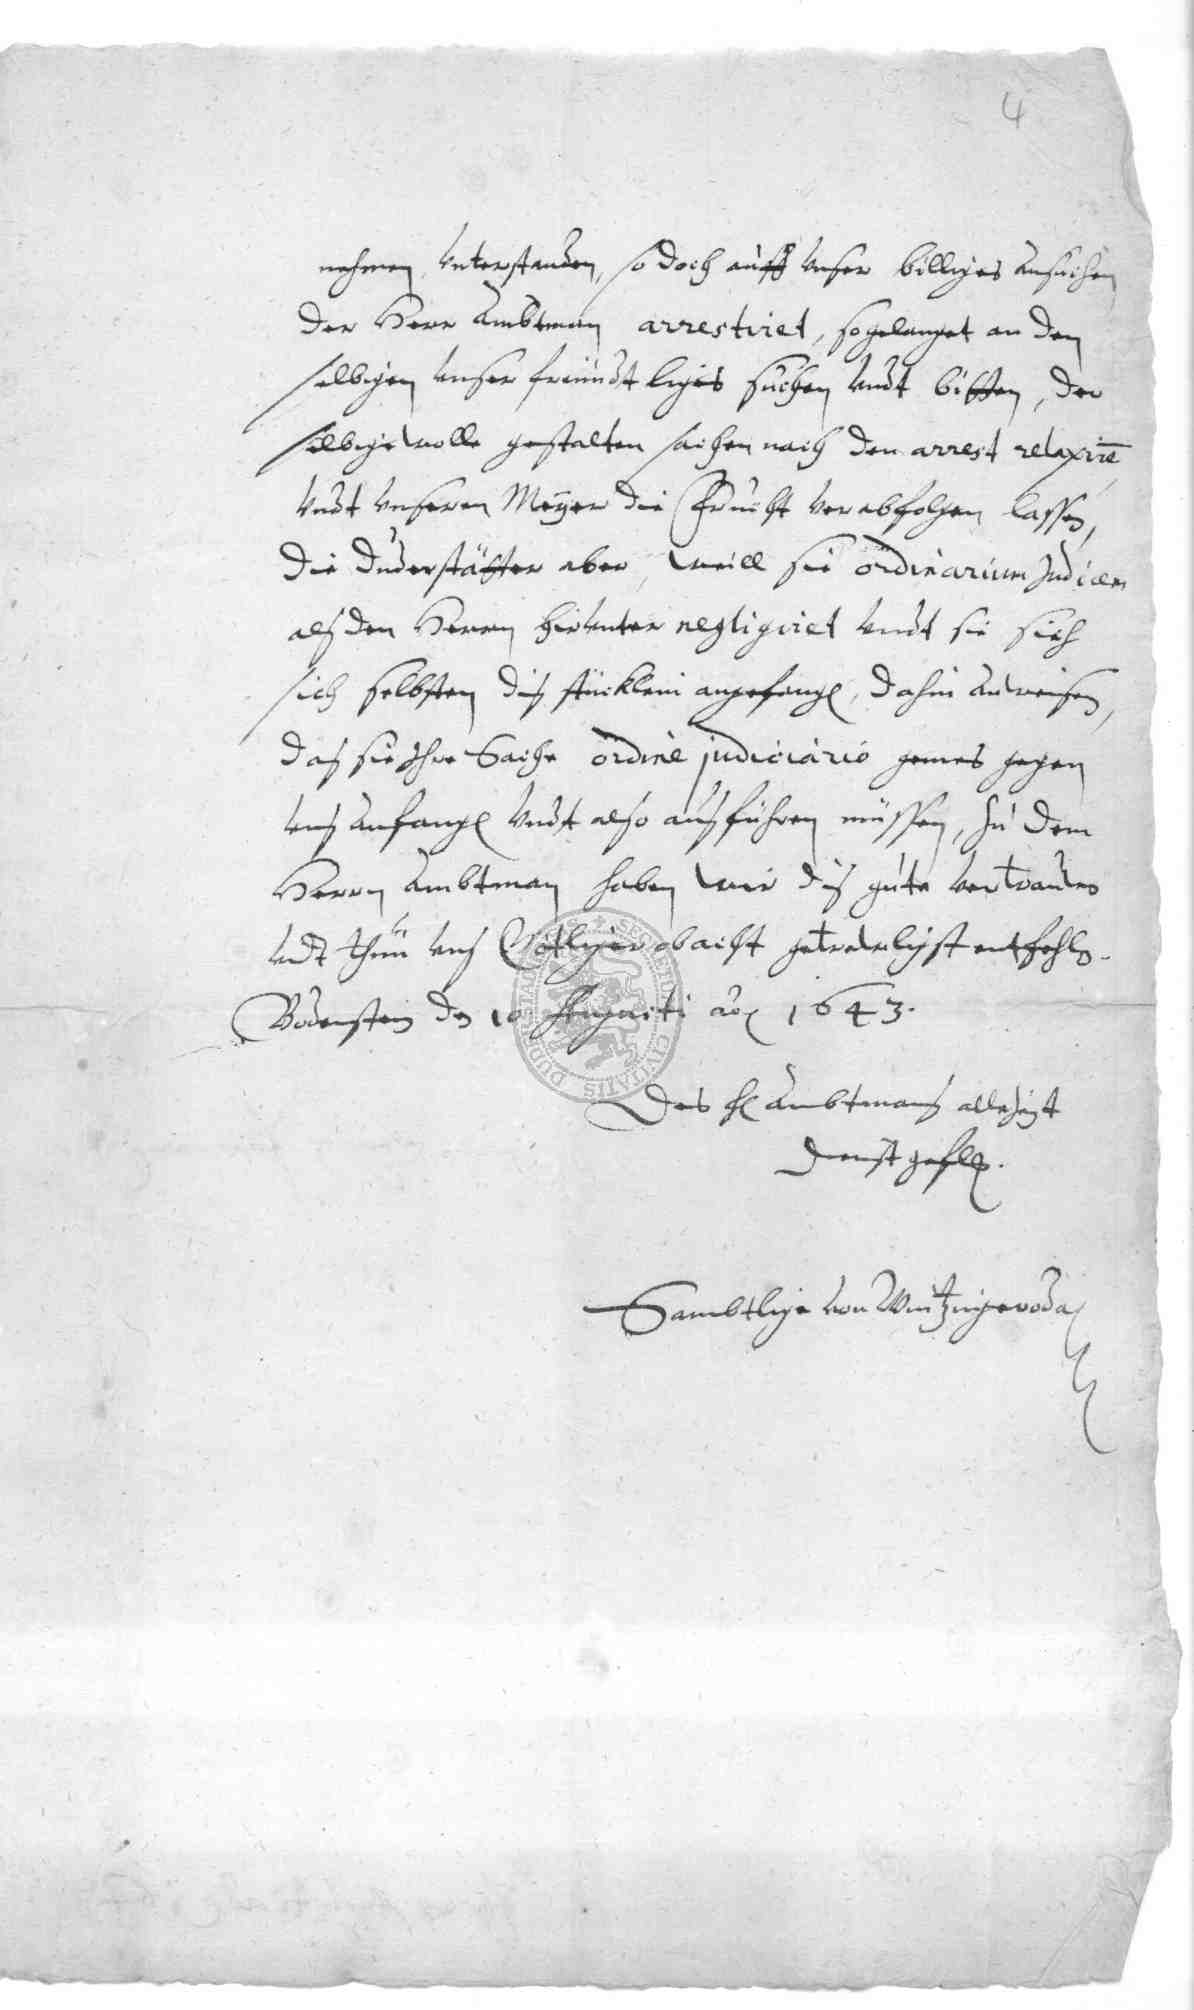 4
nehmen unterstanden, so doch auff unser billiges ansuchen
der Herr Ambtman arrestiret, so gelanget an den
selbigen unser freundtliges suchen undt bitten, der
selbige wolle gestalten sachen nach den arrest relaxirē
undt unseren Meÿer die Frucht verabfolgen lassen,
die Duderstätter aber, weill sie ordinarium Judicem
als den Herrn hirunter negligiret undt sie sich
sich selbsten dis stücklein angefangen, dahin anweisen,
das sie Ihre Sache ordine judiciario gemes gegen
uns anfangen undt also ausführen müssen, zu dem
Herrn Ambtman haben wir dis gute vertrauen
undt thun uns Götliger obacht getreuligst entfehlen.
Bodenstein den 10 Augusti ao 1643.
Des H Ambtmans allezeit
dienstgeflen.
Sambtlige von Wintzingeroda